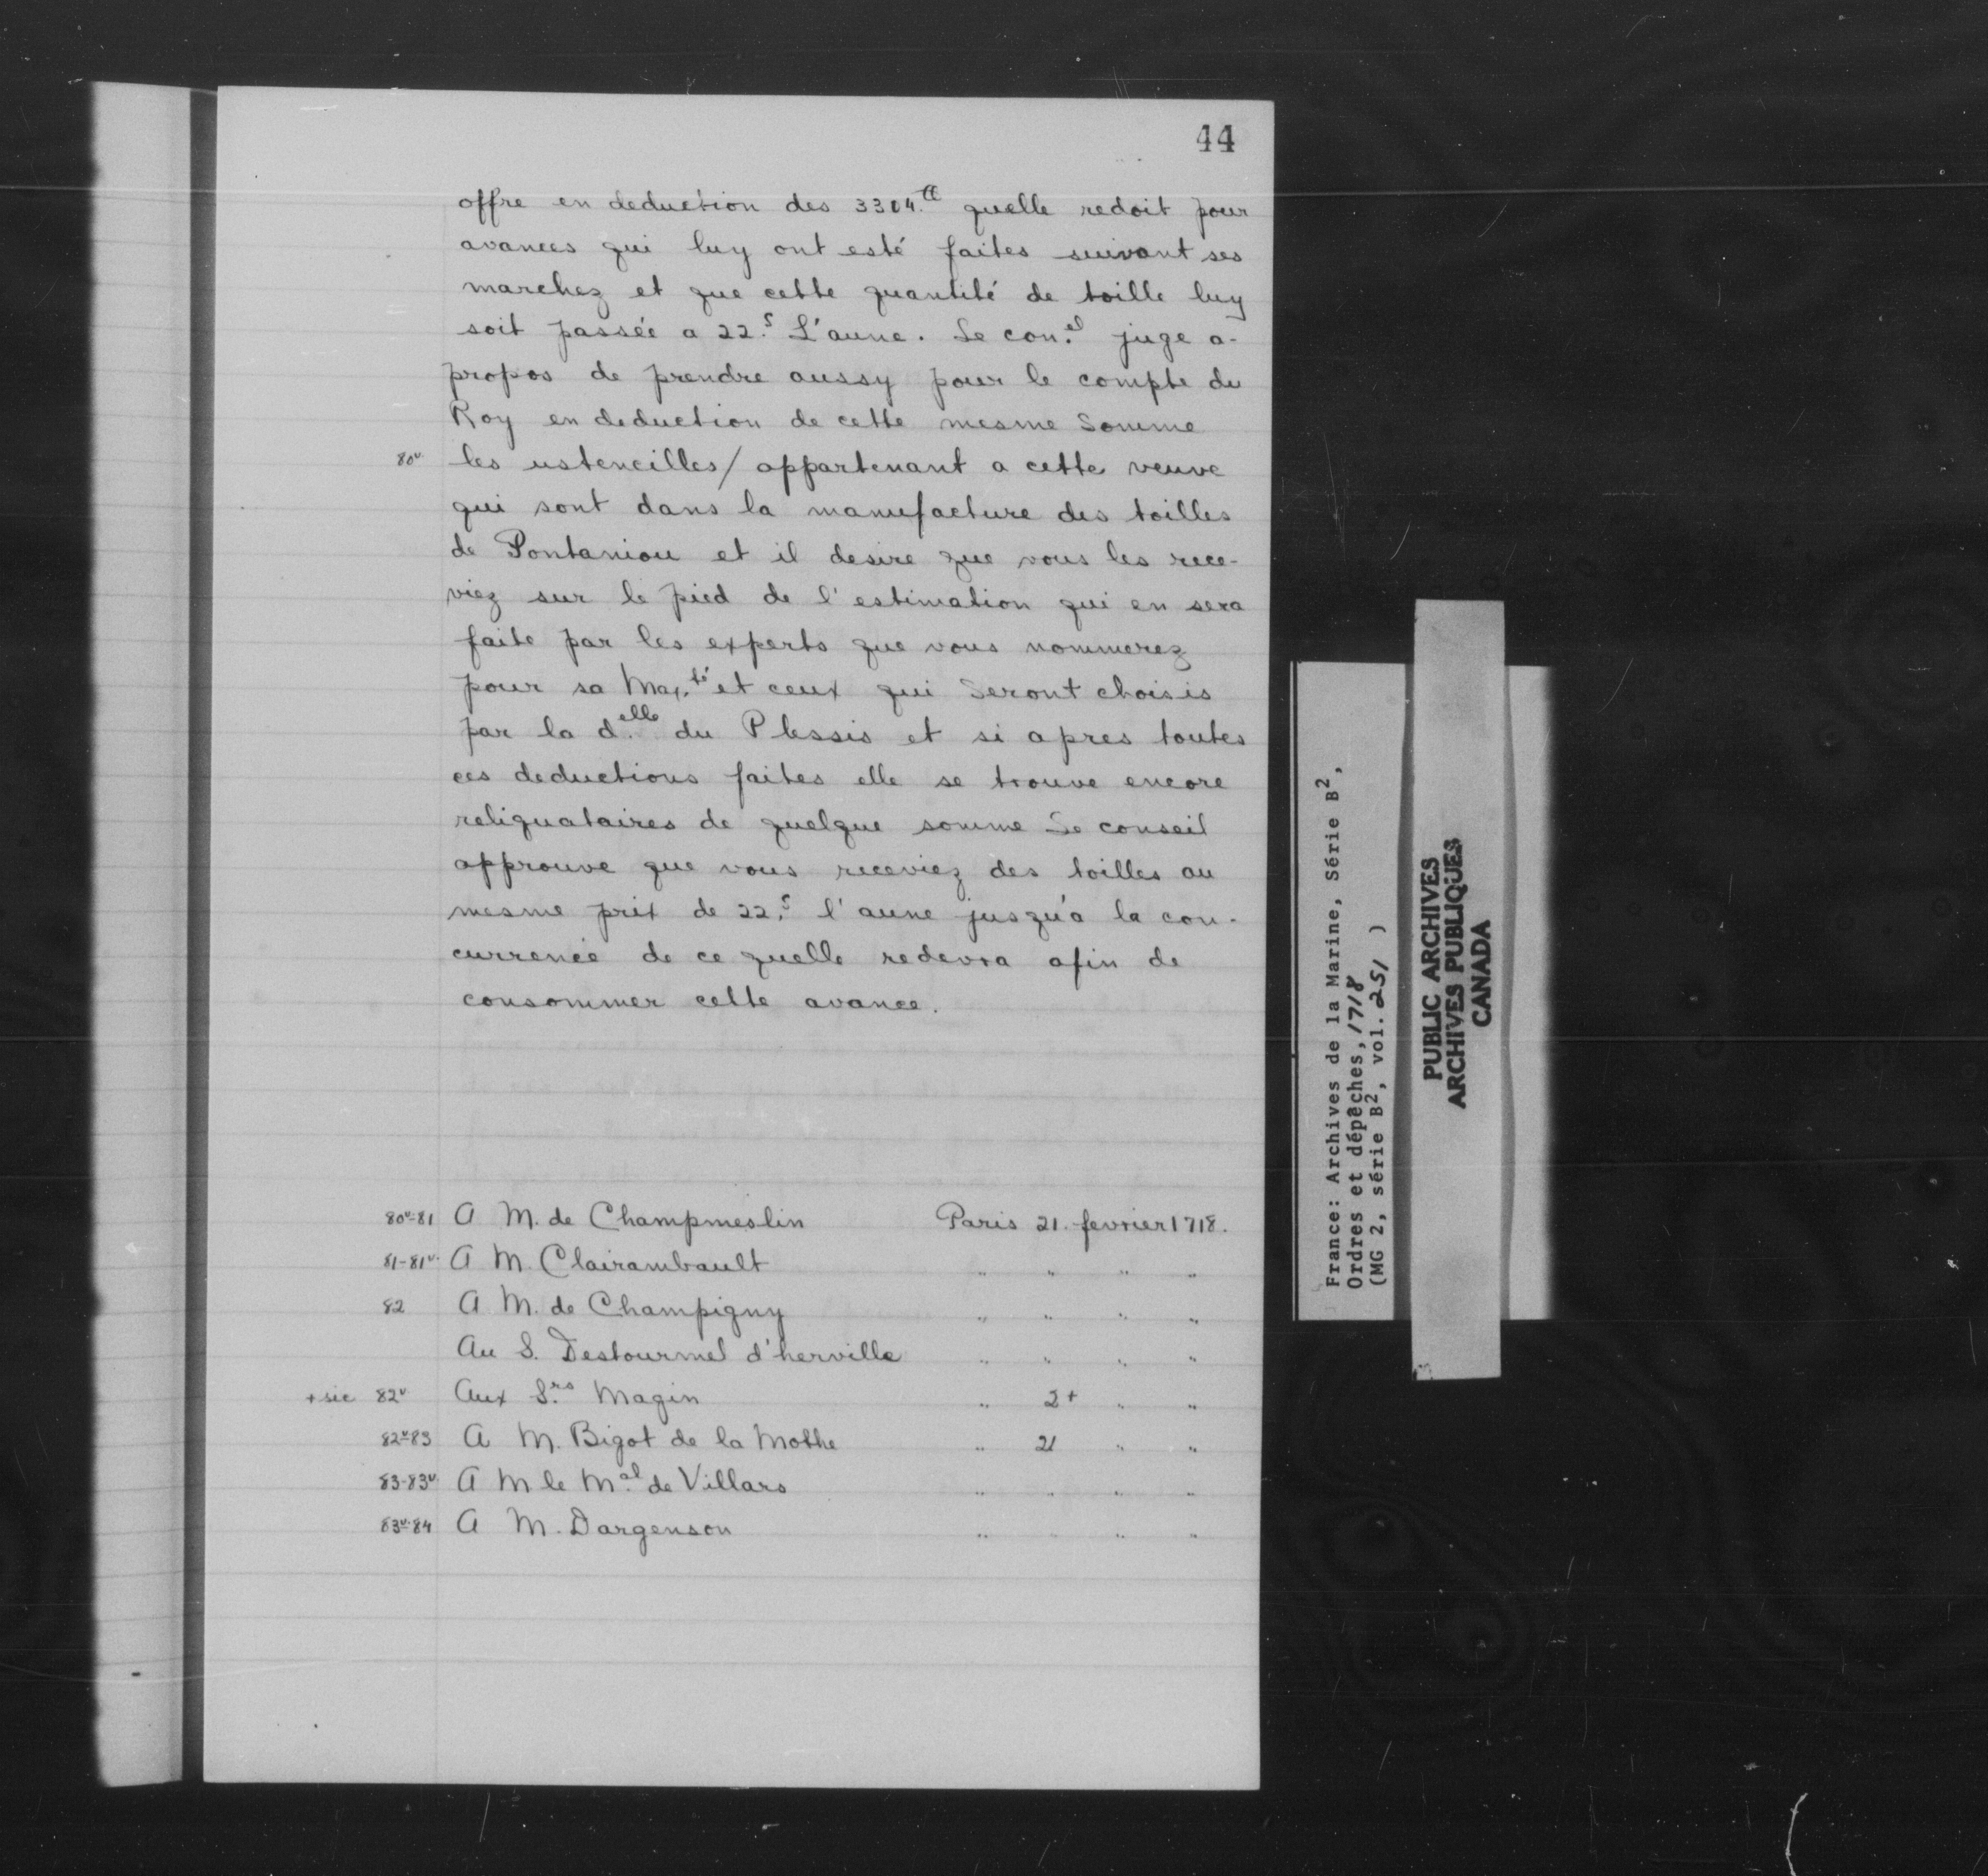 44
offre en deduction des 3304.tt quelle redoit pour
avances qui luy ont esté faites suivant ses
marchez et que cette quantité de toille luy
soit passée a 22.s L'aune. Le con.el juge a-
propos de prendre aussy pour le compte du
Roy en deduction de cette mesme Somme
80v. les ustencilles/ appartenant a cette veuve
qui sont dans la manufacture des toilles
de Pontaniou et il desire que vous les rece-
viez sur le pied de l'estimation qui en sera
faite par les experts que vous nommerez
pour sa Maj.té et ceux qui Seront choisis
par la d.elle du Plessis et si apres toutes
ces deductions faites elle se trouve encore
reliquataires de quelque somme Le conseil
approuve que vous receviez des toilles au
mesme prix de 22.s l'aune jusqu'a la con-
currence de ce quelle redevra afin de
consommer cette avance.
80v-81 A M. de Champmeslin Paris 21. fevrier 1718.
81-81v. A M. Clairambault " " " "
82 A M. de Champigny " " " "
Au S. Destourmel d'herville " " " "
+ sic 82v Aux S.rs Magin " 2+ " "
82v-83 A M. Bigot de la Mothe " 21 " "
83-83v A M. le M.al de Villars " " " "
83v-84 A M. Dargenson " " " "
France: Archives de la Marine, Série B2,
Ordres et dépêches, 1718
(MG 2, série B2, vol. 251 )
PUBLIC ARCHIVES
ARCHIVES PUBLIQUES
CANADA